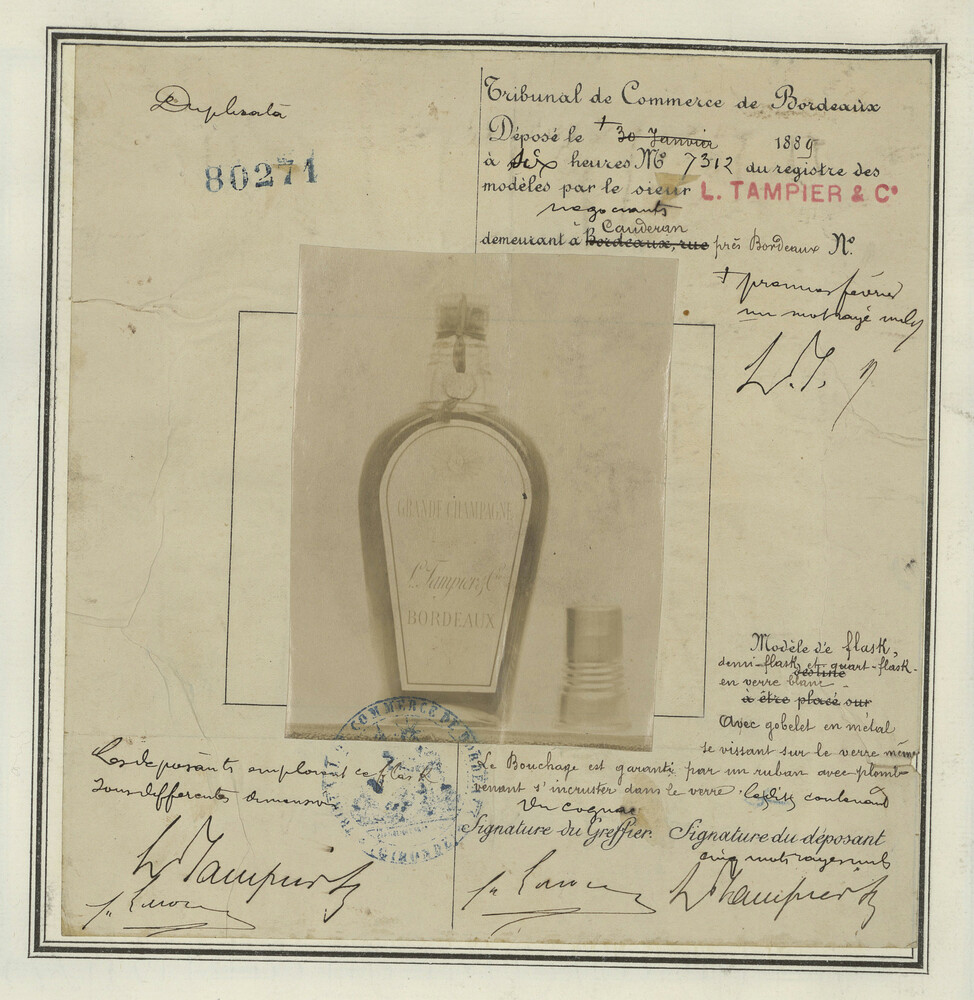 Duplicata
80271
Tribunal de Commerce de Bordeaux
Déposé le + 30 Janvier 1889
à six heures No 7312 du registre des
modèles par le sieur L. TAMPIER & Co
negociants
Cauderan
demeurant à Bordeaux, rue près Bordeaux No.
+ premier février
un mot rayé nul
L. T.
GRANDE CHAMPAGNE
L. Tampier & Cie
BORDEAUX
Modèle de flask,
demi-flask et quart-flask-
destiné
en verre blanc
à être placé sur
Avec gobelet en métal
se vissant sur le verre même
Le Bouchage est garanti par un ruban avec plomb
venant s'incruster dans le verre. Lesdits contenant
du cognac
Les deposants emploient ce flask
sous differentes dimensions
TRIBUNAL DE COMMERCE DE BORDEAUX
GIRONDE
Signature du Greffier. Signature du déposant
cinq mots rayés nuls
L Tampier
L Tampier